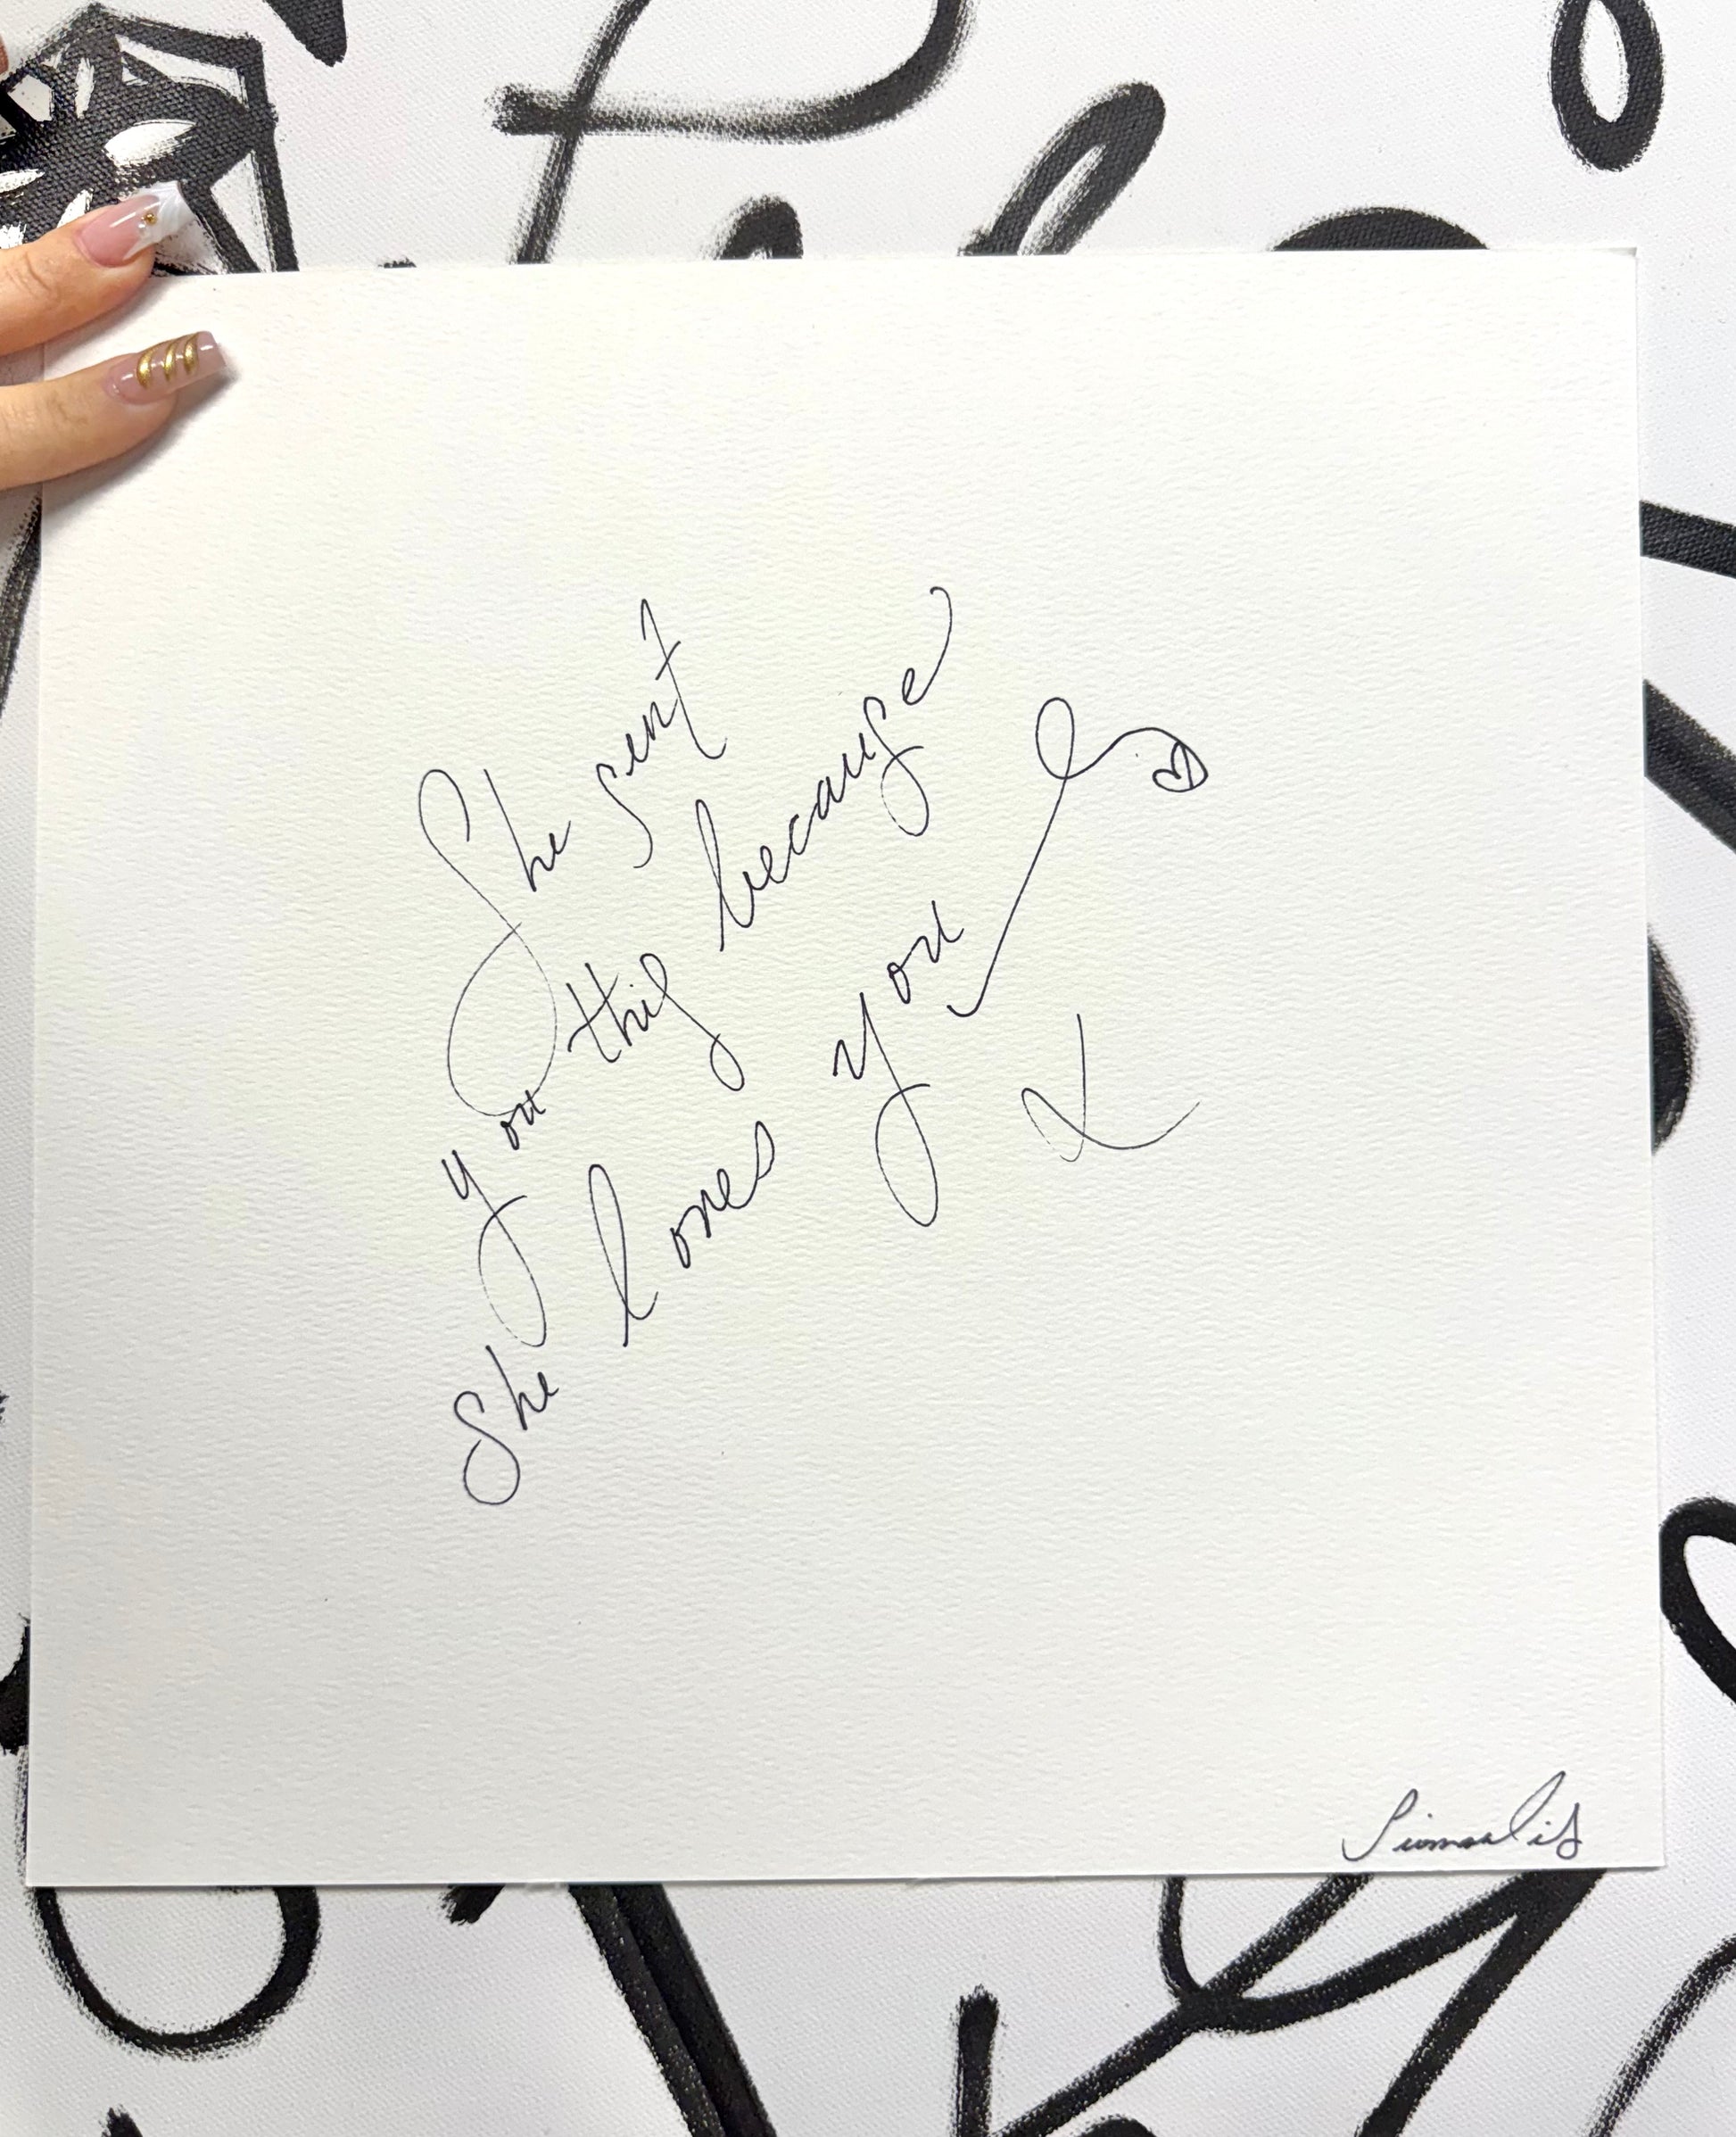 She sent
you this because
she loves you
x